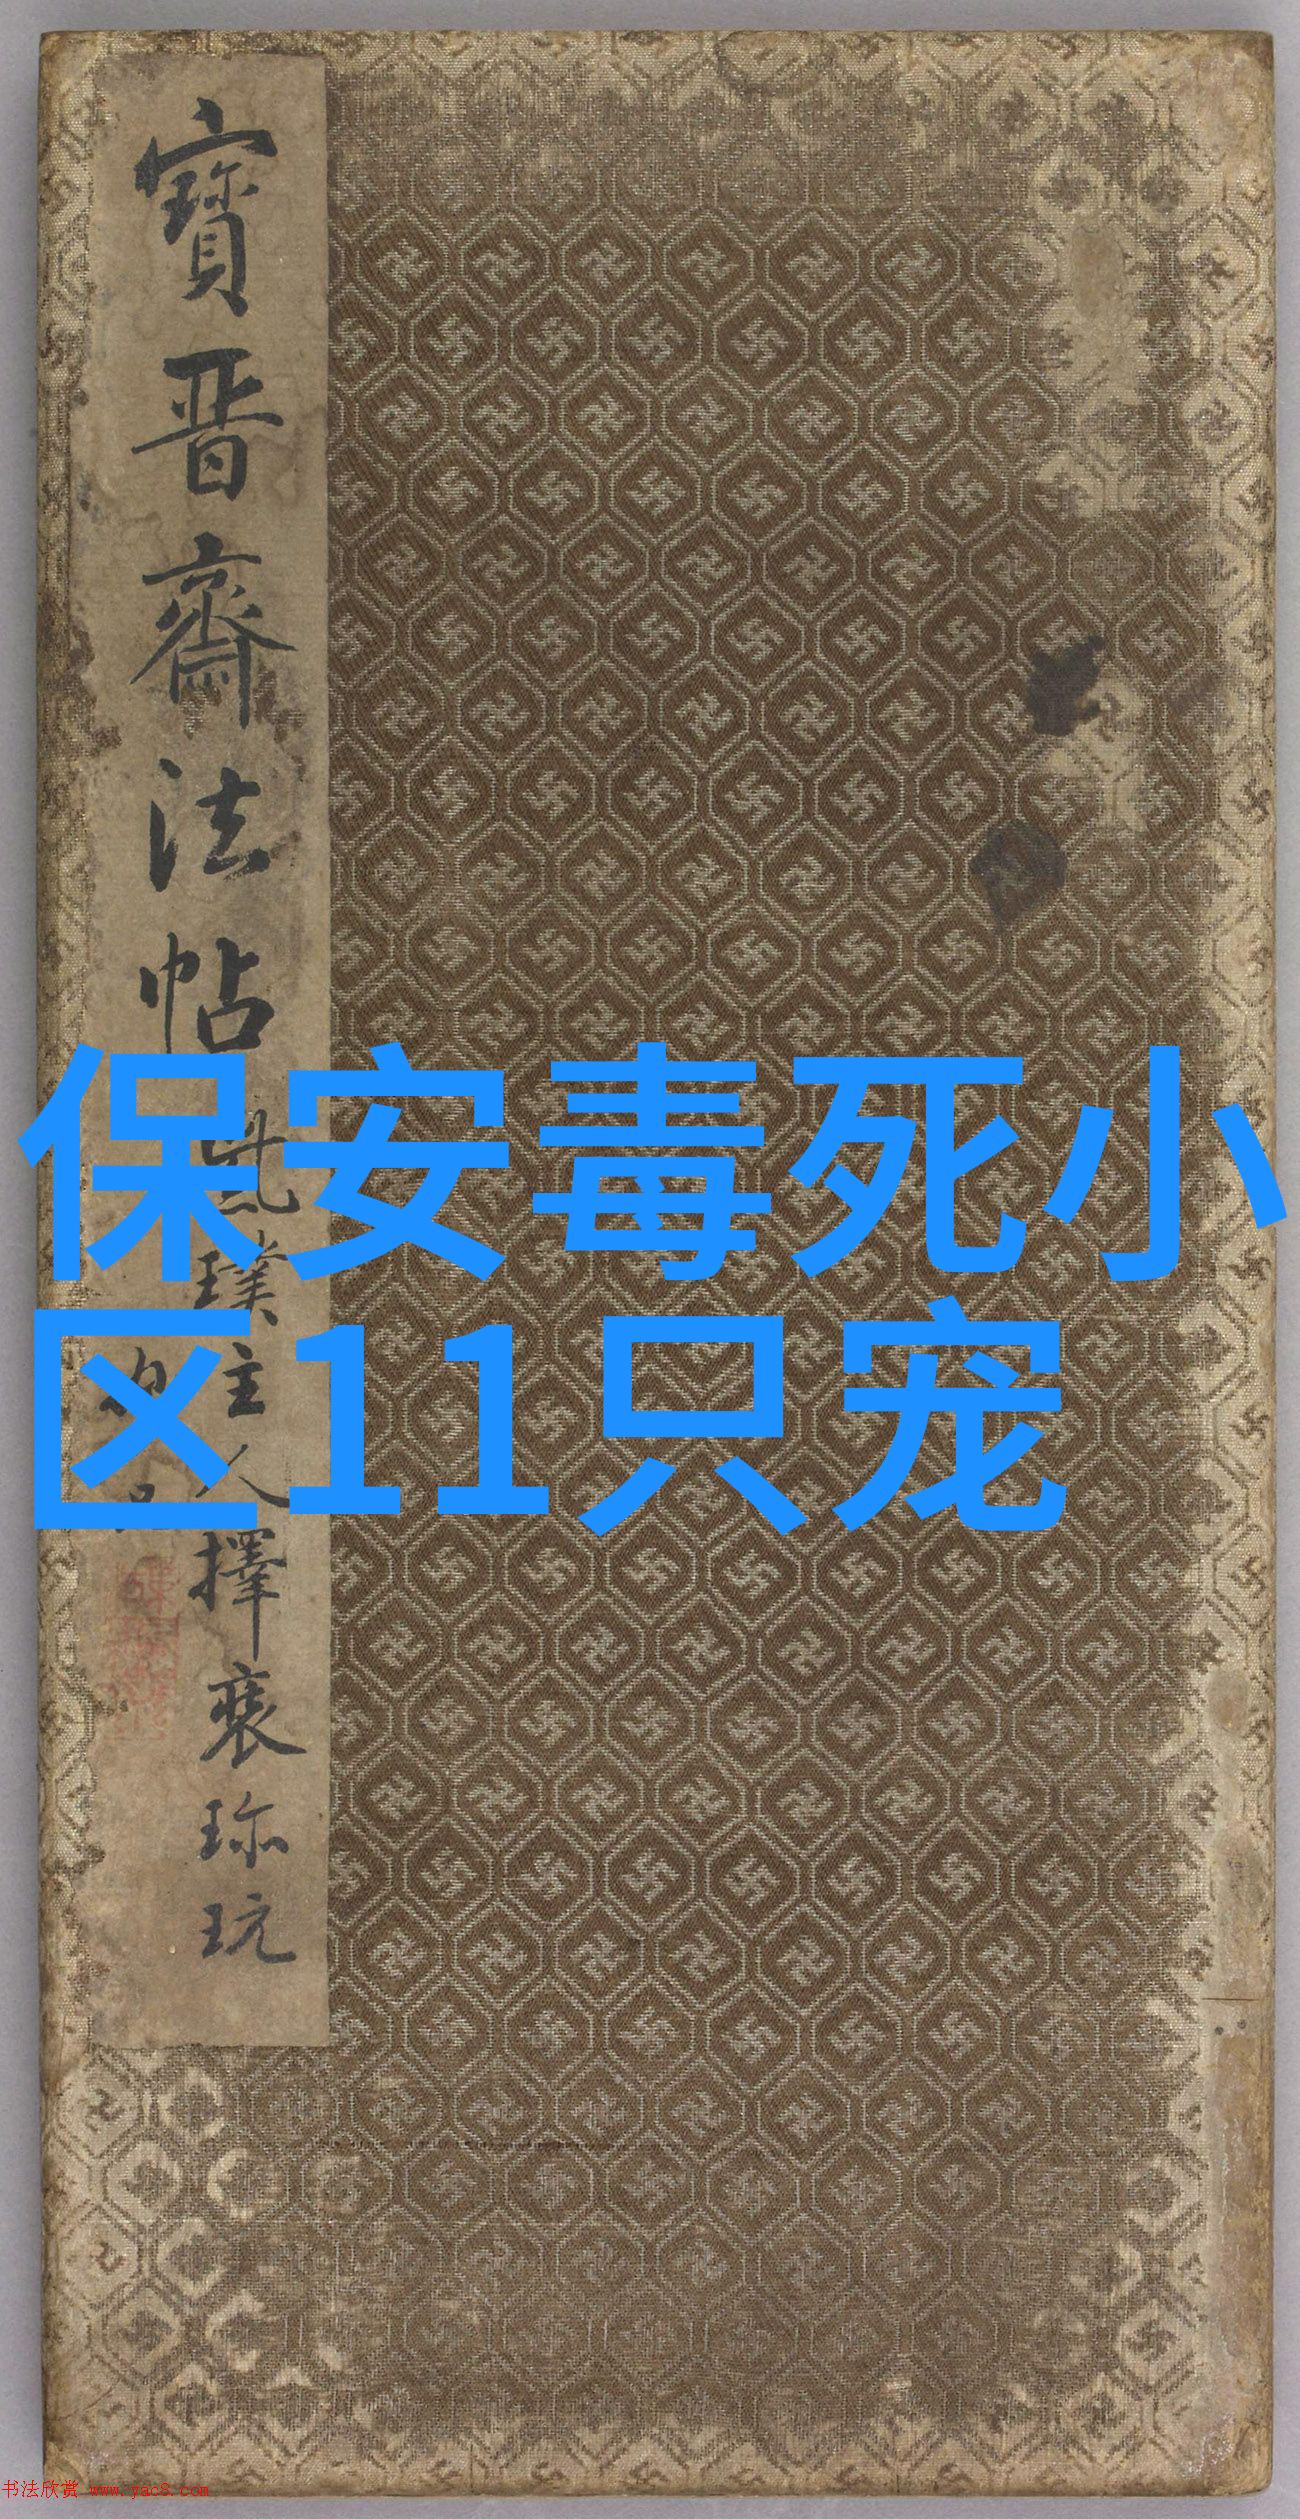 寶晋齋法帖
璞主人擇裘珎玩
保安毒死小
区11只宠
书法欣赏 www.yac8.com